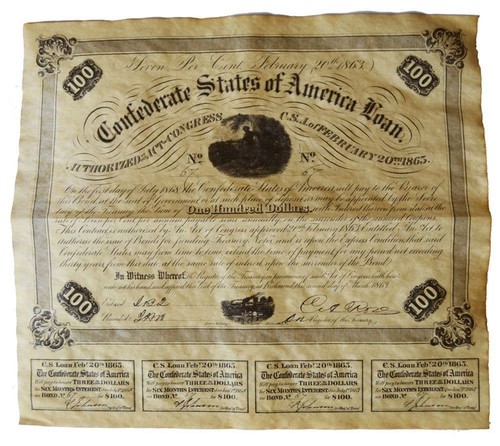 Seven Per Cent. February (20th 1863.)
100 100
Confederate States of America Loan.
AUTHORIZED BY ACT OF CONGRESS C.S.A. of FEBRUARY 20TH 1863.
No No
67 67
On the first day of July 1868 The Confederate States of America will pay to the Bearer of
this Bond at the seat of Government or at such place of deposit as may be appointed by the Secretary
of the Treasury the Sum of One Hundred Dollars, with Interest thereon from date at the
This Contract is authorized by An Act of Congress approved 20th February 1863 Entitled An Act to
authorize the issue of Bonds for funding Treasury Notes and is upon the Express Condition that said
Confederate States may from time to time extend the time of payment for any period not exceeding
thirty years from this date at the same rate of Interest upon the surrender of this Bond.
In Witness Whereof, the Register of the Treasury
set his hand and affixed the Seal of the Treasury at Richmond this second day of March 1863
100 100
Entered
Recorded
Register of the Treasury.
C.S. LOAN Feby. 20th 1863. C.S. LOAN Feby. 20th 1863. C.S. LOAN Feby. 20th 1863. C.S. LOAN Feby. 20th 1863.
The Confederate States of America The Confederate States of America The Confederate States of America The Confederate States of America
Will pay to bearer THREE 50/100 DOLLARS Will pay to bearer THREE 50/100 DOLLARS Will pay to bearer THREE 50/100 DOLLARS Will pay to bearer THREE 50/100 DOLLARS
for SIX MONTHS INTEREST for SIX MONTHS INTEREST for SIX MONTHS INTEREST for SIX MONTHS INTEREST
on BOND No. 67 for $100. on BOND No. for $100. on BOND No. 67 for $100. on BOND No. for $100.